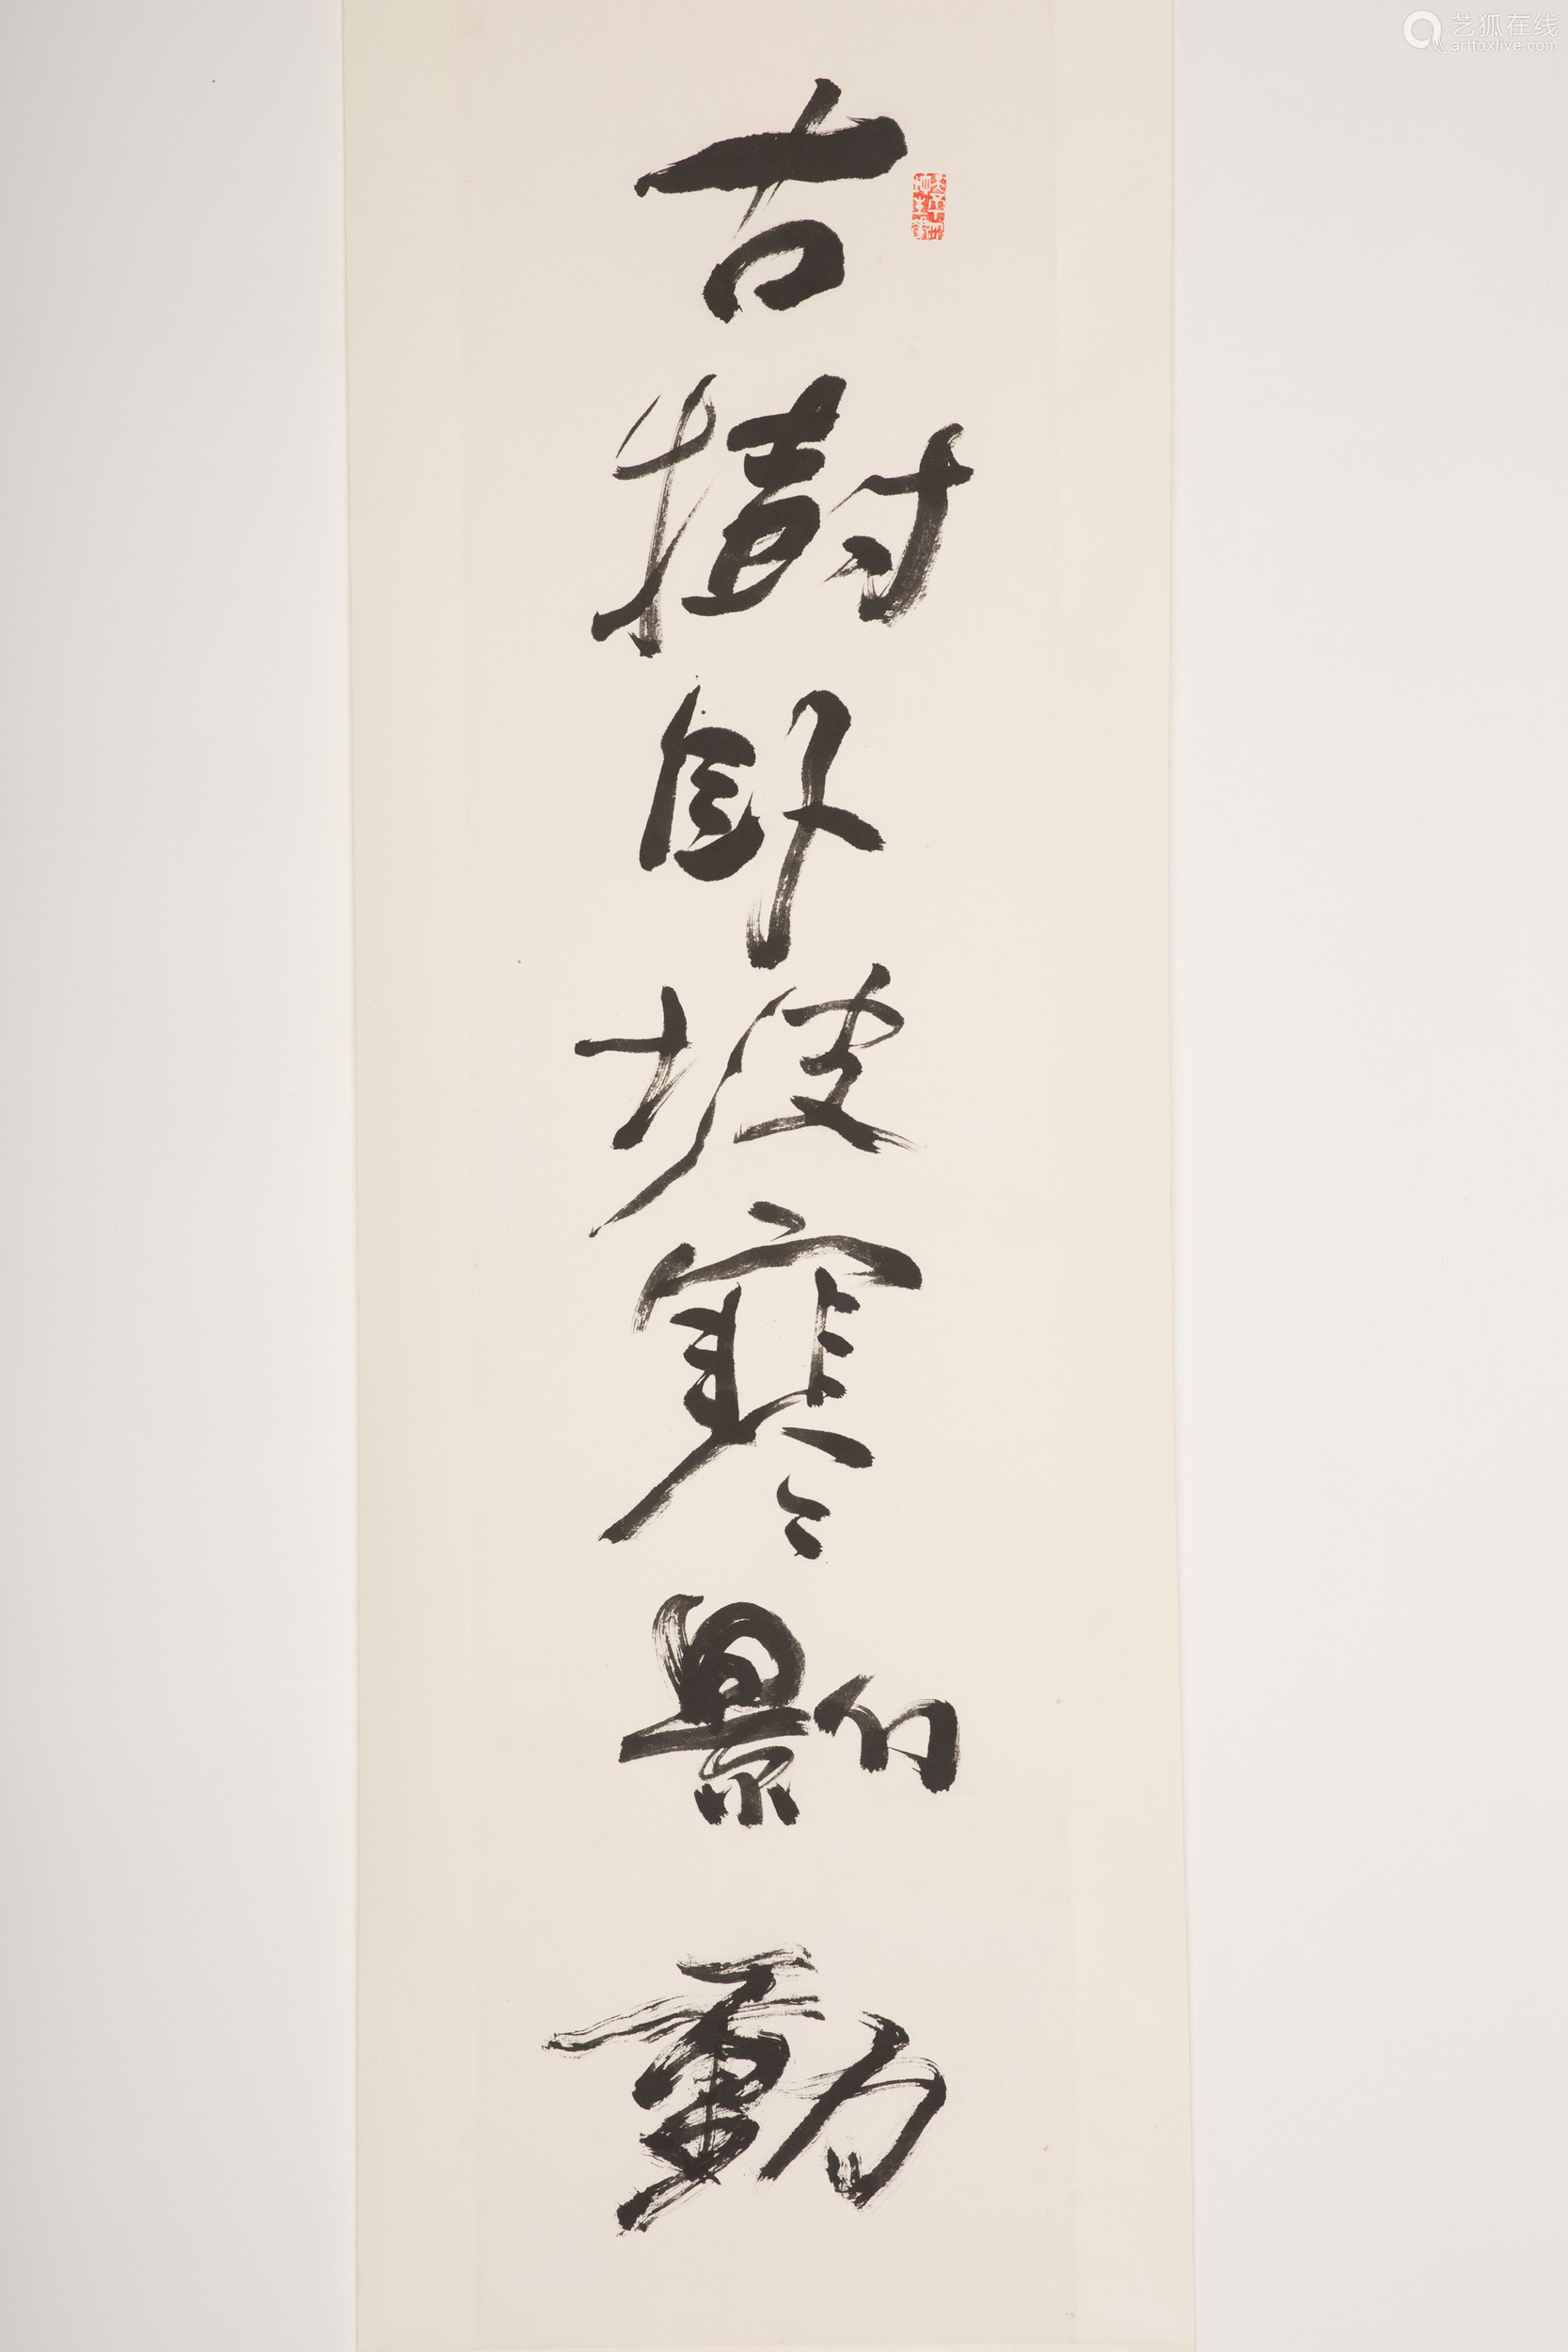 古樹臥坡寒影動
艺狐在线
artfoxlive.com